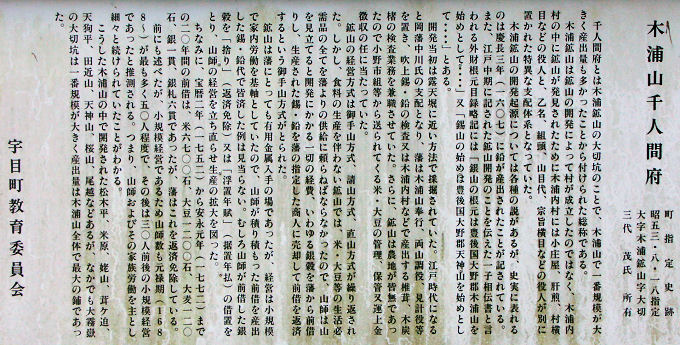 木浦山千人間府
町指定史跡
昭五三・八・一八指定
大字木浦鉱山字大切
三代 茂氏 所有
千人間府とは木浦鉱山の大切坑のことで、木浦山で一番規模が大
きく産出量も多かったことから付けられた総称である。
木浦鉱山は鉱山の開発によって村が成立したのではなく、木浦内
村の中に鉱山が発見されたために木浦内村には小庄屋、肝煎、村横
目などの役人と、乙名、組頭、山目代、宗旨横目などの役人が別に
置かれた特異な支配体系となっていた。
木浦鉱山の開発起源については各種の説があるが、史実に表れる
のは慶長三年(一六〇七)に鉛が産出されたことが記されている。
また、江戸中期に記された鉱山開発のことを伝えた一子相伝書と言
われる外財根元目録略記には「銀山の根元は豊後国大野郡木浦山を
始めとして・・・又「錫山の始めは豊後国大野郡天神山を始めとし
て・・・とある。
開発当初は露天堀に近い方法で採掘されていた。江戸時代になる
と岡藩中川氏の支配となり、藩は木浦山奉行、両山調方、見計役等
を置き、吹上錫・鉛の検査又は木浦内村などで産出する椎茸、木炭
楮の検査業務を兼職させていた。さらに、鉱山は農地が皆無であっ
たので小野市組等から送られてくる米・大豆の管理、保管又運上金
徴収の任に当たっていた。
鉱山の経営方式は御手山方式、請山方式、直山方式が繰り返され
た。しかし、食料の生産を伴わない鉱山では、米・大豆等の生活必
需品の全てを藩よりの供給に頼らねばならなかったので、山師は山
を見立てると開発にかかる一切の経費、いわゆる銀穀を藩から前借
りし、生産された錫・鉛を藩の指定した商人に売却して前借を返済
するという御手山方式がとられた。
鉱山は藩にとっても有用金属入手の場であったが、経営は小規模
で家内労働を基軸としていたので、山師が積り積もった前借を産出
した錫・鉛代で皆済した例は見当らない。むしろ山師が前借した銀
穀を「捨り」(返済免除)又は「浮置年賦」(据置年払)の借置を
とり、山師の経営を立ち直らせ生産の拡大を図った。
ちなみに、宝暦二年(一七五二)から安永元年(一七七二)まで
の二〇年間の前借は、米六七〇〇石、大豆一二〇〇石、大麦一二〇
石、銀一貫、銀札六貫であったが、藩はこれを返済免除している。
前にも述べたが、小規模経営であるため山師数も元禄期(168
8~)が最も多く五〇人程度で、その後は三〇人前後の小規模経営
であったと推測される。つまり、山師およびその家族労働を主とし
細々と続けられていたことがわかる。
こうした木浦山の中で開発された松木平、米原、姥山、茸ケ迫、
天狗平、田近山、天神山、桜山、尾越などあるが、なかでも大霧嶽
の大切坑は一番規模が大き、産出量は木浦鉱山全体で最大の鋪であっ
た
宇目町教育委員会